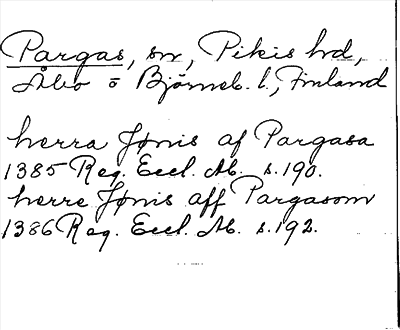 Pargas, sn, Pikis hd,
Åbo o Björneb. l., Finland
herra Jønis af Pargasa
1385 Reg. Eccl. Ab. s. 190.
herre Jønis aff Pargasom
1386 Reg. Eccl. Ab. s. 192.